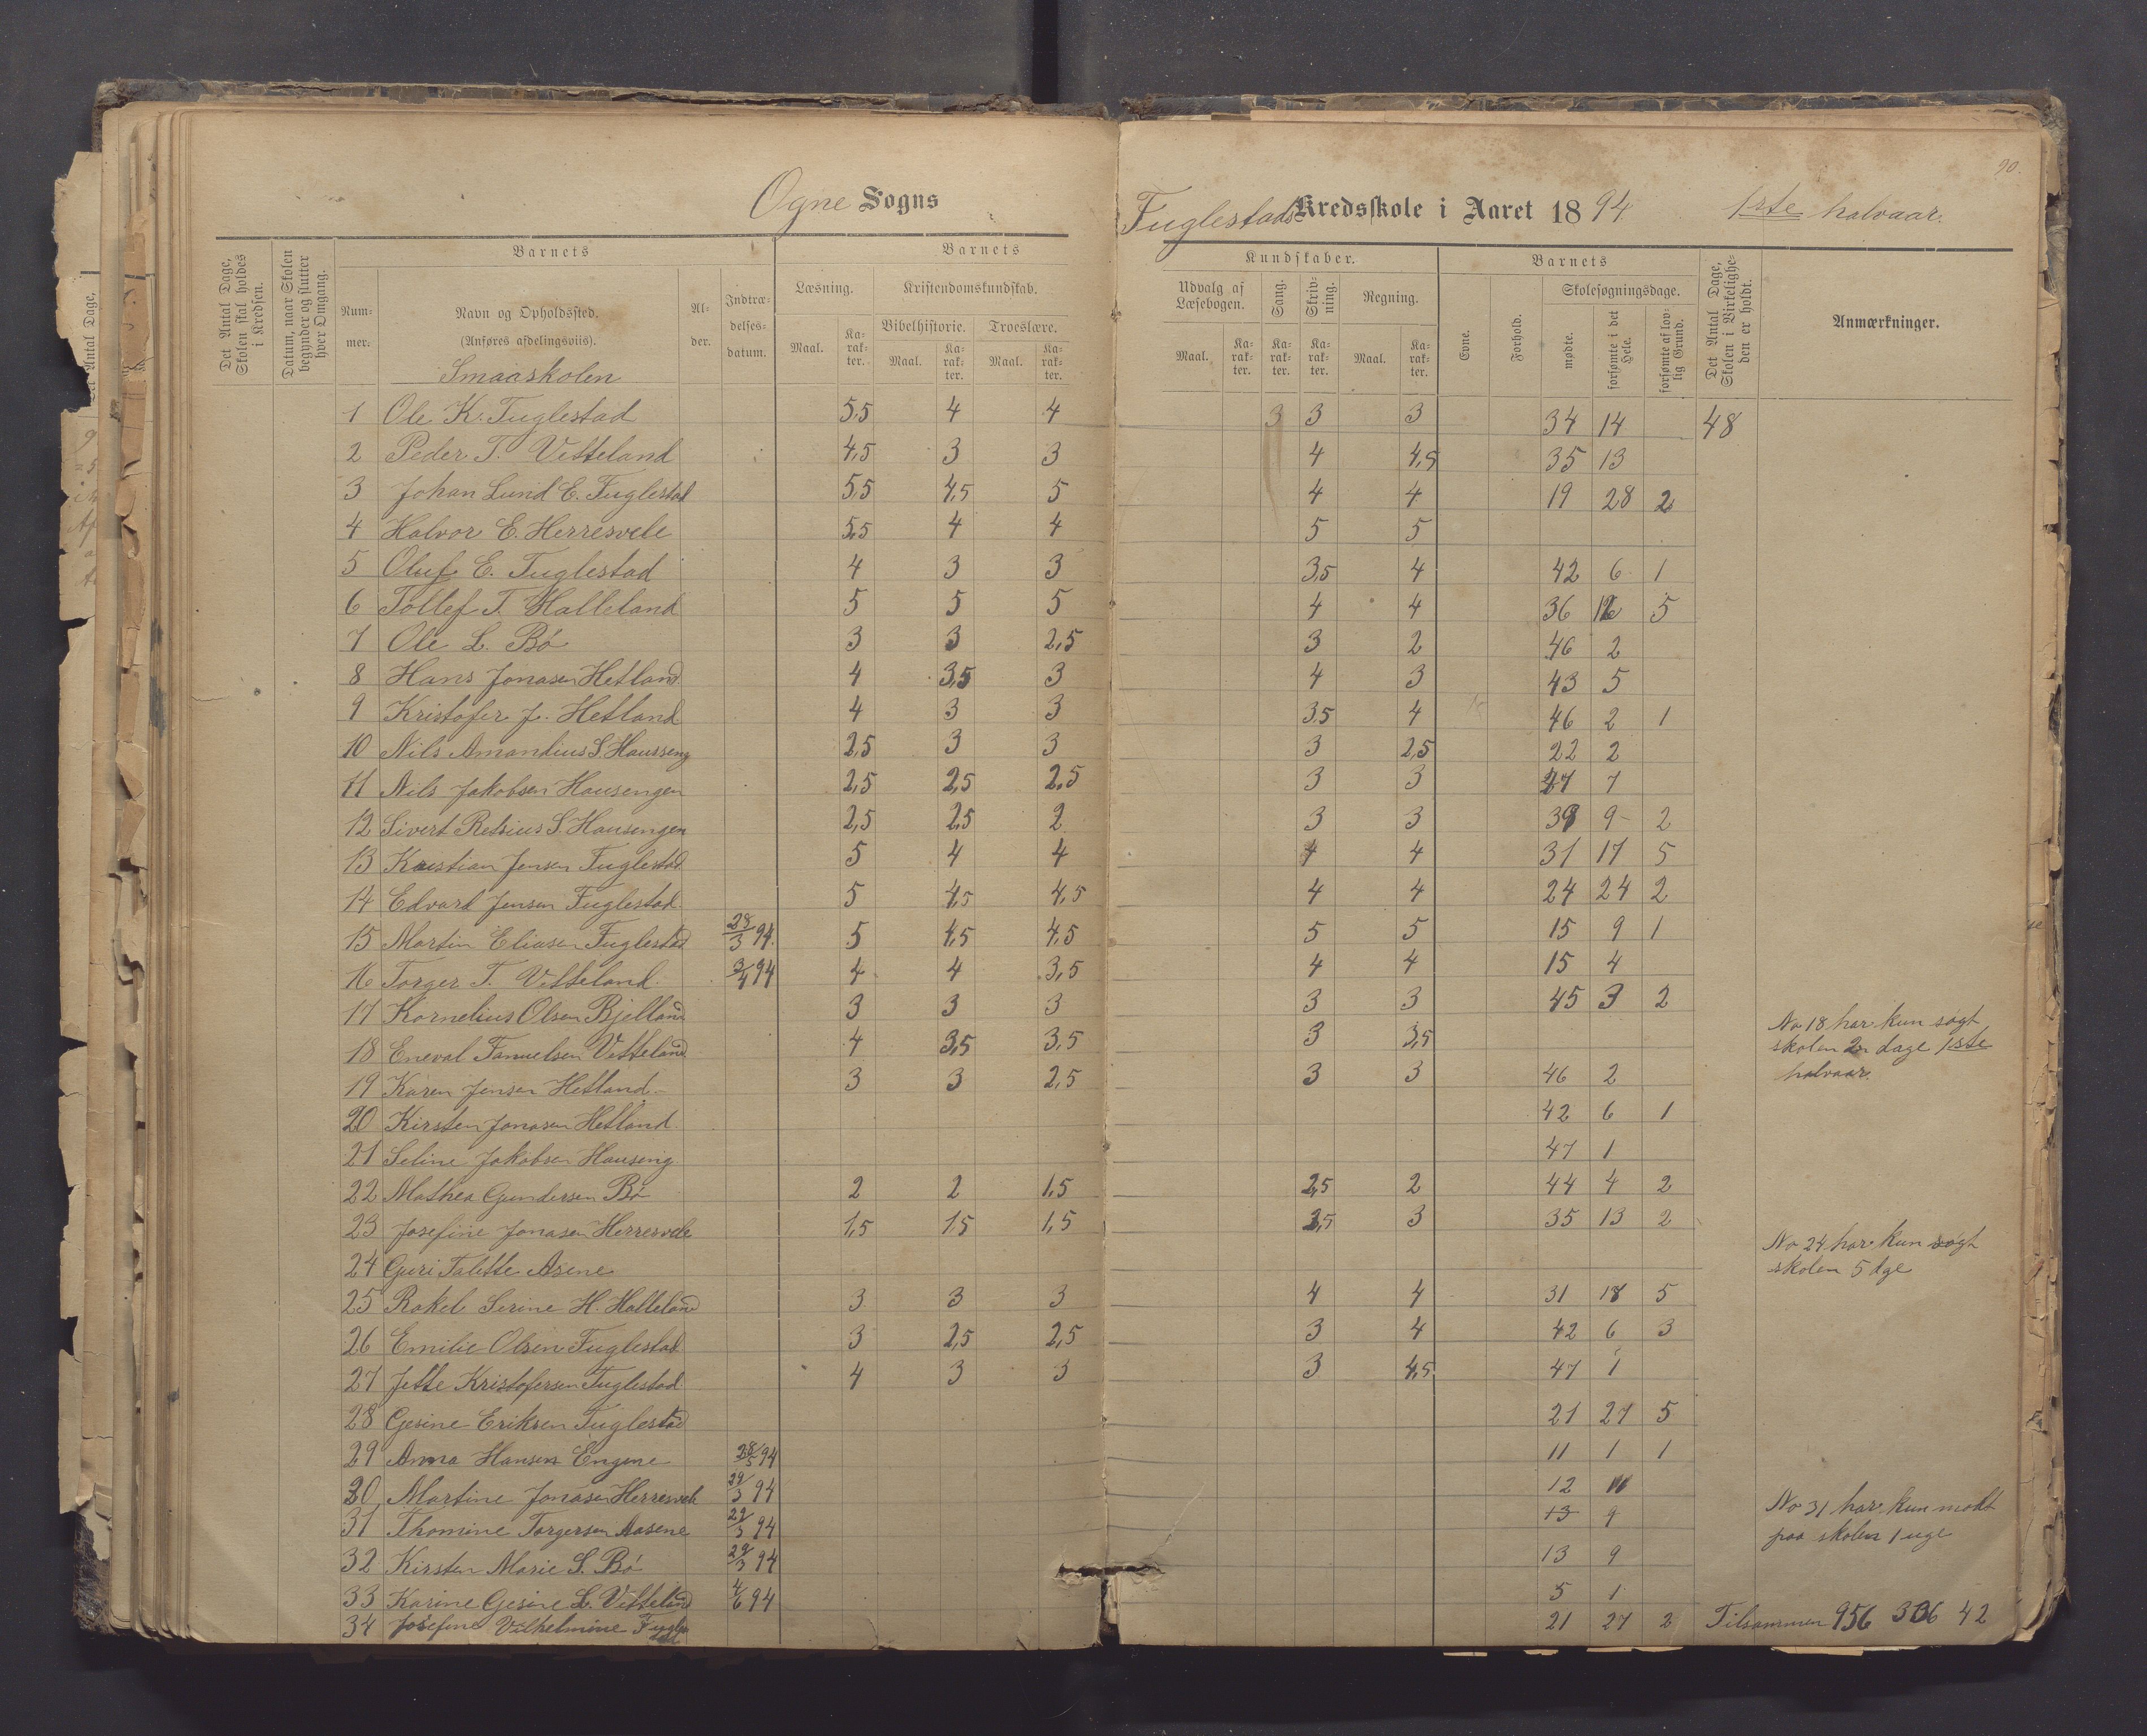 90.
Ogne Sogns
Fuglestads Kredsskole i Aaret 1894 1ste halvaar.
Det Antal Dage, Skolen skal holdes i Kredsen.
Datum, naar Skolen begynder og slutter hver Omgang.
Barnets
Nummer.
Navn og Opholdssted.
(Anføres afdelingsviis).
Smaaskolen
Alder.
Indtrædelsesdatum.
Barnets
Læsning.
Maal. Karakter.
Kristendomskundskab.
Bibelhistorie. Troeslære.
Maal. Karakter. Maal. Karakter.
Kundskaber.
Udvalg af Læsebogen.
Maal. Karakter.
Sang. Karakter.
Skrivning. Karakter.
Regning.
Maal. Karakter.
Barnets
Evne. Forhold.
Skolesøgningsdage.
mødte. forsømte i det Hele. forsømte af lovlig Grund.
Det Antal Dage, Skolen i Virkeligheden er holdt.
Anmærkninger.
1 Ole K. Fuglestad 5,5 4 4 3 3 3 34 14 48
2 Peder T. Vetteland 4,5 3 3 4 4,5 35 13
3 Johan Lund E. Fuglestad 5,5 4,5 5 4 4 19 28 2
4 Halvor E. Herresvele 5,5 4 4 5 5
5 Oluf E. Fuglestad 4 3 3 3,5 4 42 6 1
6 Tollef T. Halleland 5 5 5 4 4 36 12 5
7 Ole L. Bø 3 3 2,5 3 2 46 2
8 Hans Jonasen Hetland 4 3,5 3 4 3 43 5
9 Kristofer J. Hetland 4 3 3 3,5 4 46 2 1
10 Nils Amandius S. Hausseng 2,5 3 3 3 2,5 22 2
11 Nils Jakobsen Hausengen 2,5 2,5 2,5 3 3 27 7
12 Sivert Retsius S. Hausengen 2,5 2,5 2 3 3 39 9 2
13 Kristian Jensen Fuglestad 5 4 4 4 4 31 17 5
14 Edvard Jensen Fuglestad 5 4,5 4,5 4 4 24 24 2
15 Martin Eliasen Fuglestad 28/3 94. 5 4,5 4,5 5 5 15 9 1
16 Torger T. Vetteland. 3/4 94 4 4 3,5 4 4 15 4
17 Kornelius Olsen Bjelland 3 3 3 3 3 45 3 2
18 Eneval Tanuelsen Vetteland 4 3,5 3,5 3 3,5
No 18 har kun søgt
skolen 2 dage 1ste
halvaar.
19 Karen Jensen Hetland. 3 3 2,5 3 3 46 2
20 Kirsten Jonasen Hetland. 42 6 1
21 Seline Jakobsen Hauseng. 47 1
22 Mathea Gundersen Bø 2 2 1,5 2,5 2 44 4 2
23 Josefine Jonasen Herresvele 1,5 1,5 1,5 2,5 3 35 13 2
24 Guri Talette Asene
No 24 har kun søgt
skolen 5 dge
25 Rakel Serine H. Halleland 3 3 3 4 4 31 18 5
26 Emilie Olsen Fuglestad 3 2,5 2,5 3 4 42 6 3
27 Jette Kristofersen Fuglestad 4 3 3 3 4,5 47 1
28 Gesine Eriksen Fuglestad 21 27 5
29 Anna Hansen Engene 28/5 94 11 1 1
30 Martine Jonasen Herresvele 29/3 94 12 11
31 Thomine Torgersen Aasene 29/3 94 13 9
No 31 har kun mødt
paa skolen 1 uge
32 Kirsten Marie S. Bø 29/3 94 13 9
33 Karine Gesine L. Vetteland 4/6 94 5 1
34 Josefine Vilhelmine Fuglestad 21 27 2 Tilsammen 956 306 42